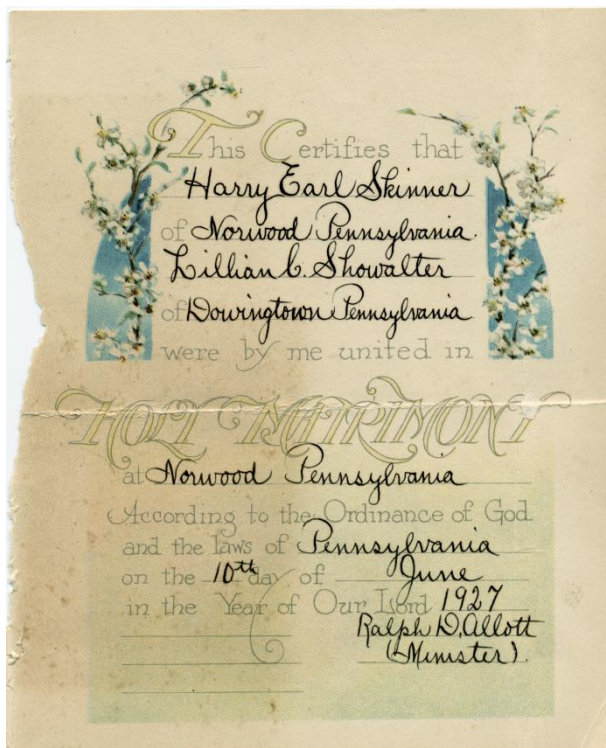 This Certifies that
Harry Earl Skinner
of Norwood Pennsylvania.
Lillian C. Showalter
of Dowingtown Pennsylvania
were by me united in
HOLY MATRIMONY
at Norwood Pennsylvania
According to the Ordinance of God
and the laws of Pennsylvania
on the 10th day of June
in the Year of Our Lord 1927
Ralph D. Allott
(Minister).